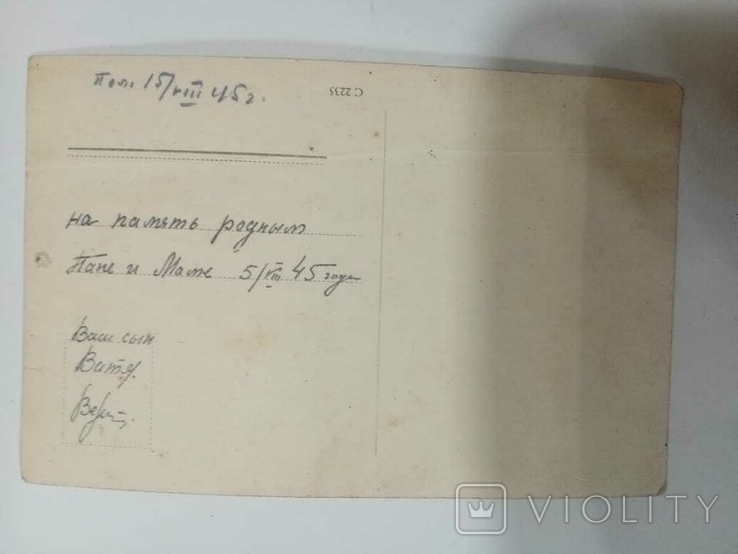 Пол. 15/VIII 45 г.
С 2235
на память родным
Папе и Маме 5/VIII 45 года
Ваш сын
Витя.
VIOLITY